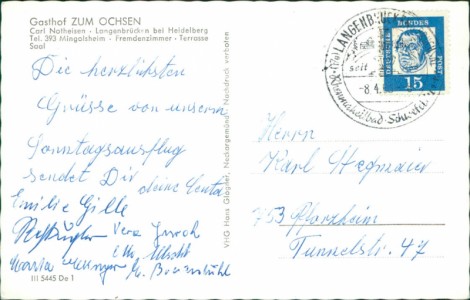 Gasthof ZUM OCHSEN
Carl Notheisen - Langenbrücken bei Heidelberg
Tel. 393 Mingolsheim - Fremdenzimmer - Terrasse
Saal
Die herzlichsten
Grüsse von unserm
Sonntagsausflug
sendet Dir deine
Emilie Gille
Vera
III 5445 De 1
VHG Hans Glögner, Neckargemünd - Nachdruck verboten
LANGENBRÜCKEN
seit
-8.4.
DEUTSCHE
BUNDES
POST
15
Herrn
Karl Stegmaier
753 Pforzheim
Tunnelstr. 47